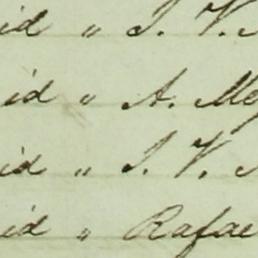 id " J. V.
id " A. Me
id " J. V.
id " Rafae